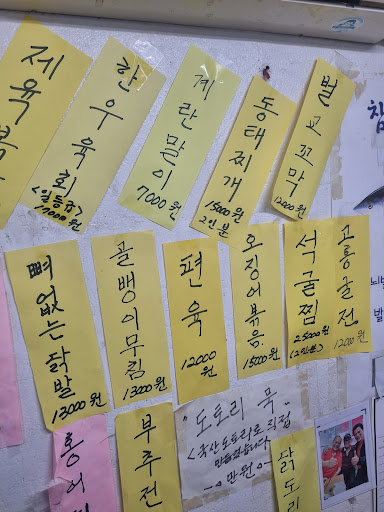 제육볶
한우육회
<일등급>
계란말이
7000원
동태찌개
15000원
2인분
벌교꼬막
12000원
참
뼈없는닭발
13000원
골뱅이무침
13000원
편육
12000원
오징어볶음
15000원
석굴찜
25000원
(2인분)
고흥굴전
12000원
홍어
부추전
"도토리 묵"
<국산도토리로 직접
만들었습니다>
만원
닭도리